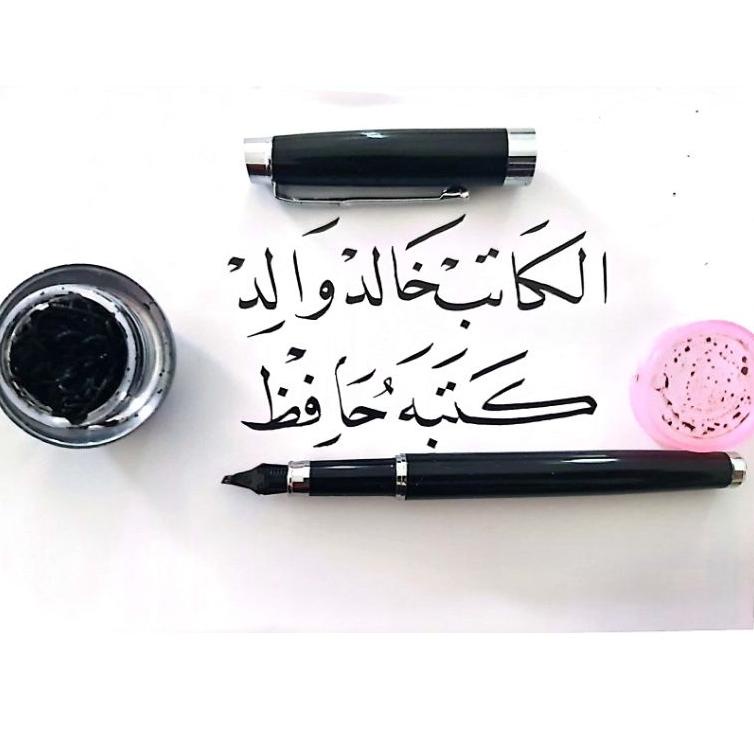 الكَاتبْ خَالدْ وَالِدْ
كَتَبَه حَُافِظْ